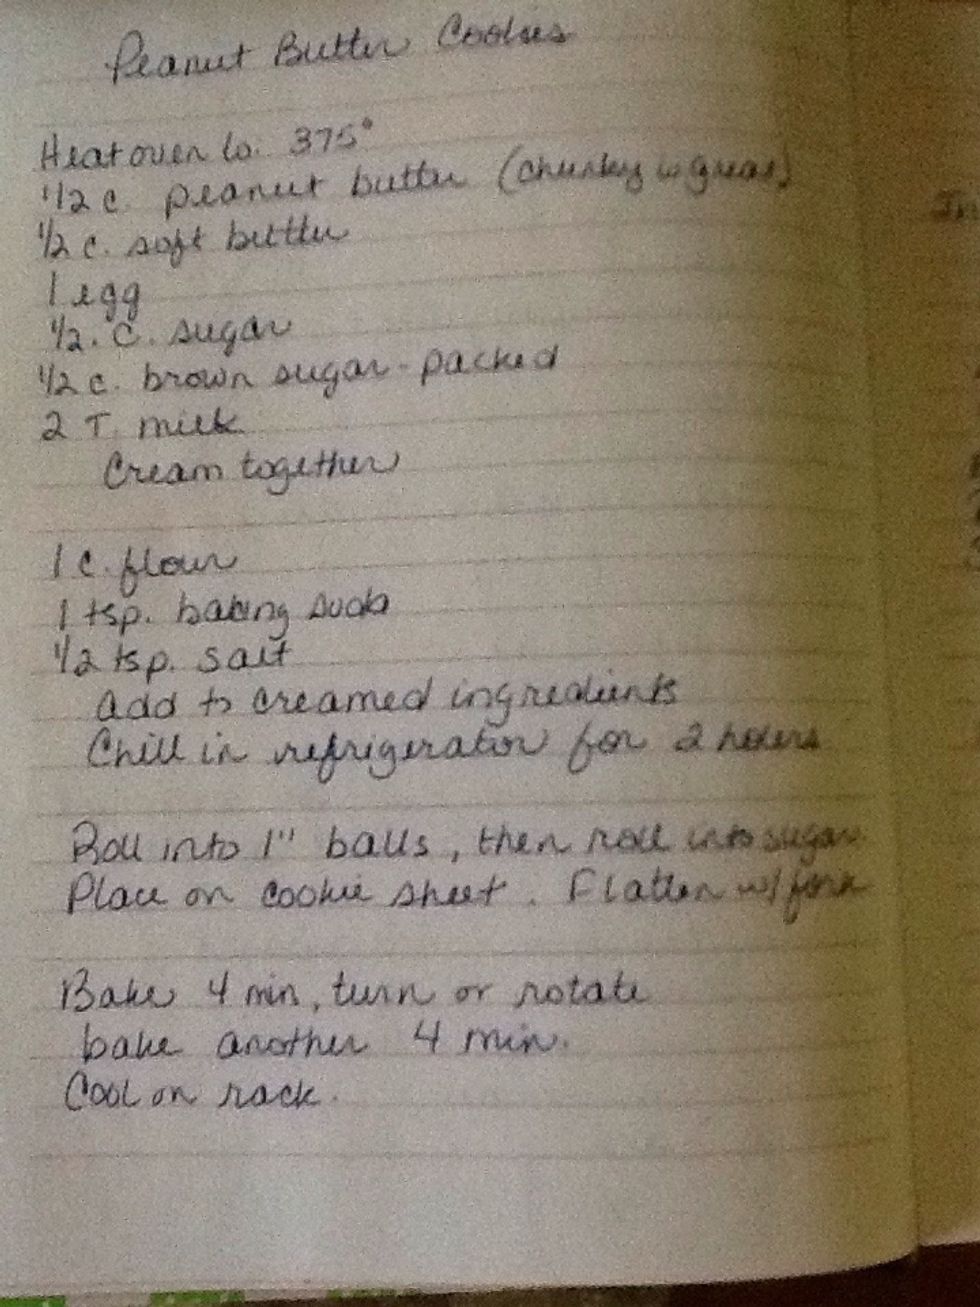 Peanut Butter Cookies
Heat oven to. 375°
1/2 c. peanut butter (chunky is great)
1/2 c. soft butter
1 egg
1/2. c. sugar
1/2 c. brown sugar - packed
2 T. milk
Cream together
1 c. flour
1 tsp. baking soda
1/2 tsp. salt
add to creamed ingredients
Chill in refrigerator for 2 hours
Roll into 1" balls, then roll into sugar
Place on cookie sheet. Flatten w/ fork
Bake 4 min, turn or rotate
bake another 4 min.
Cool on rack.